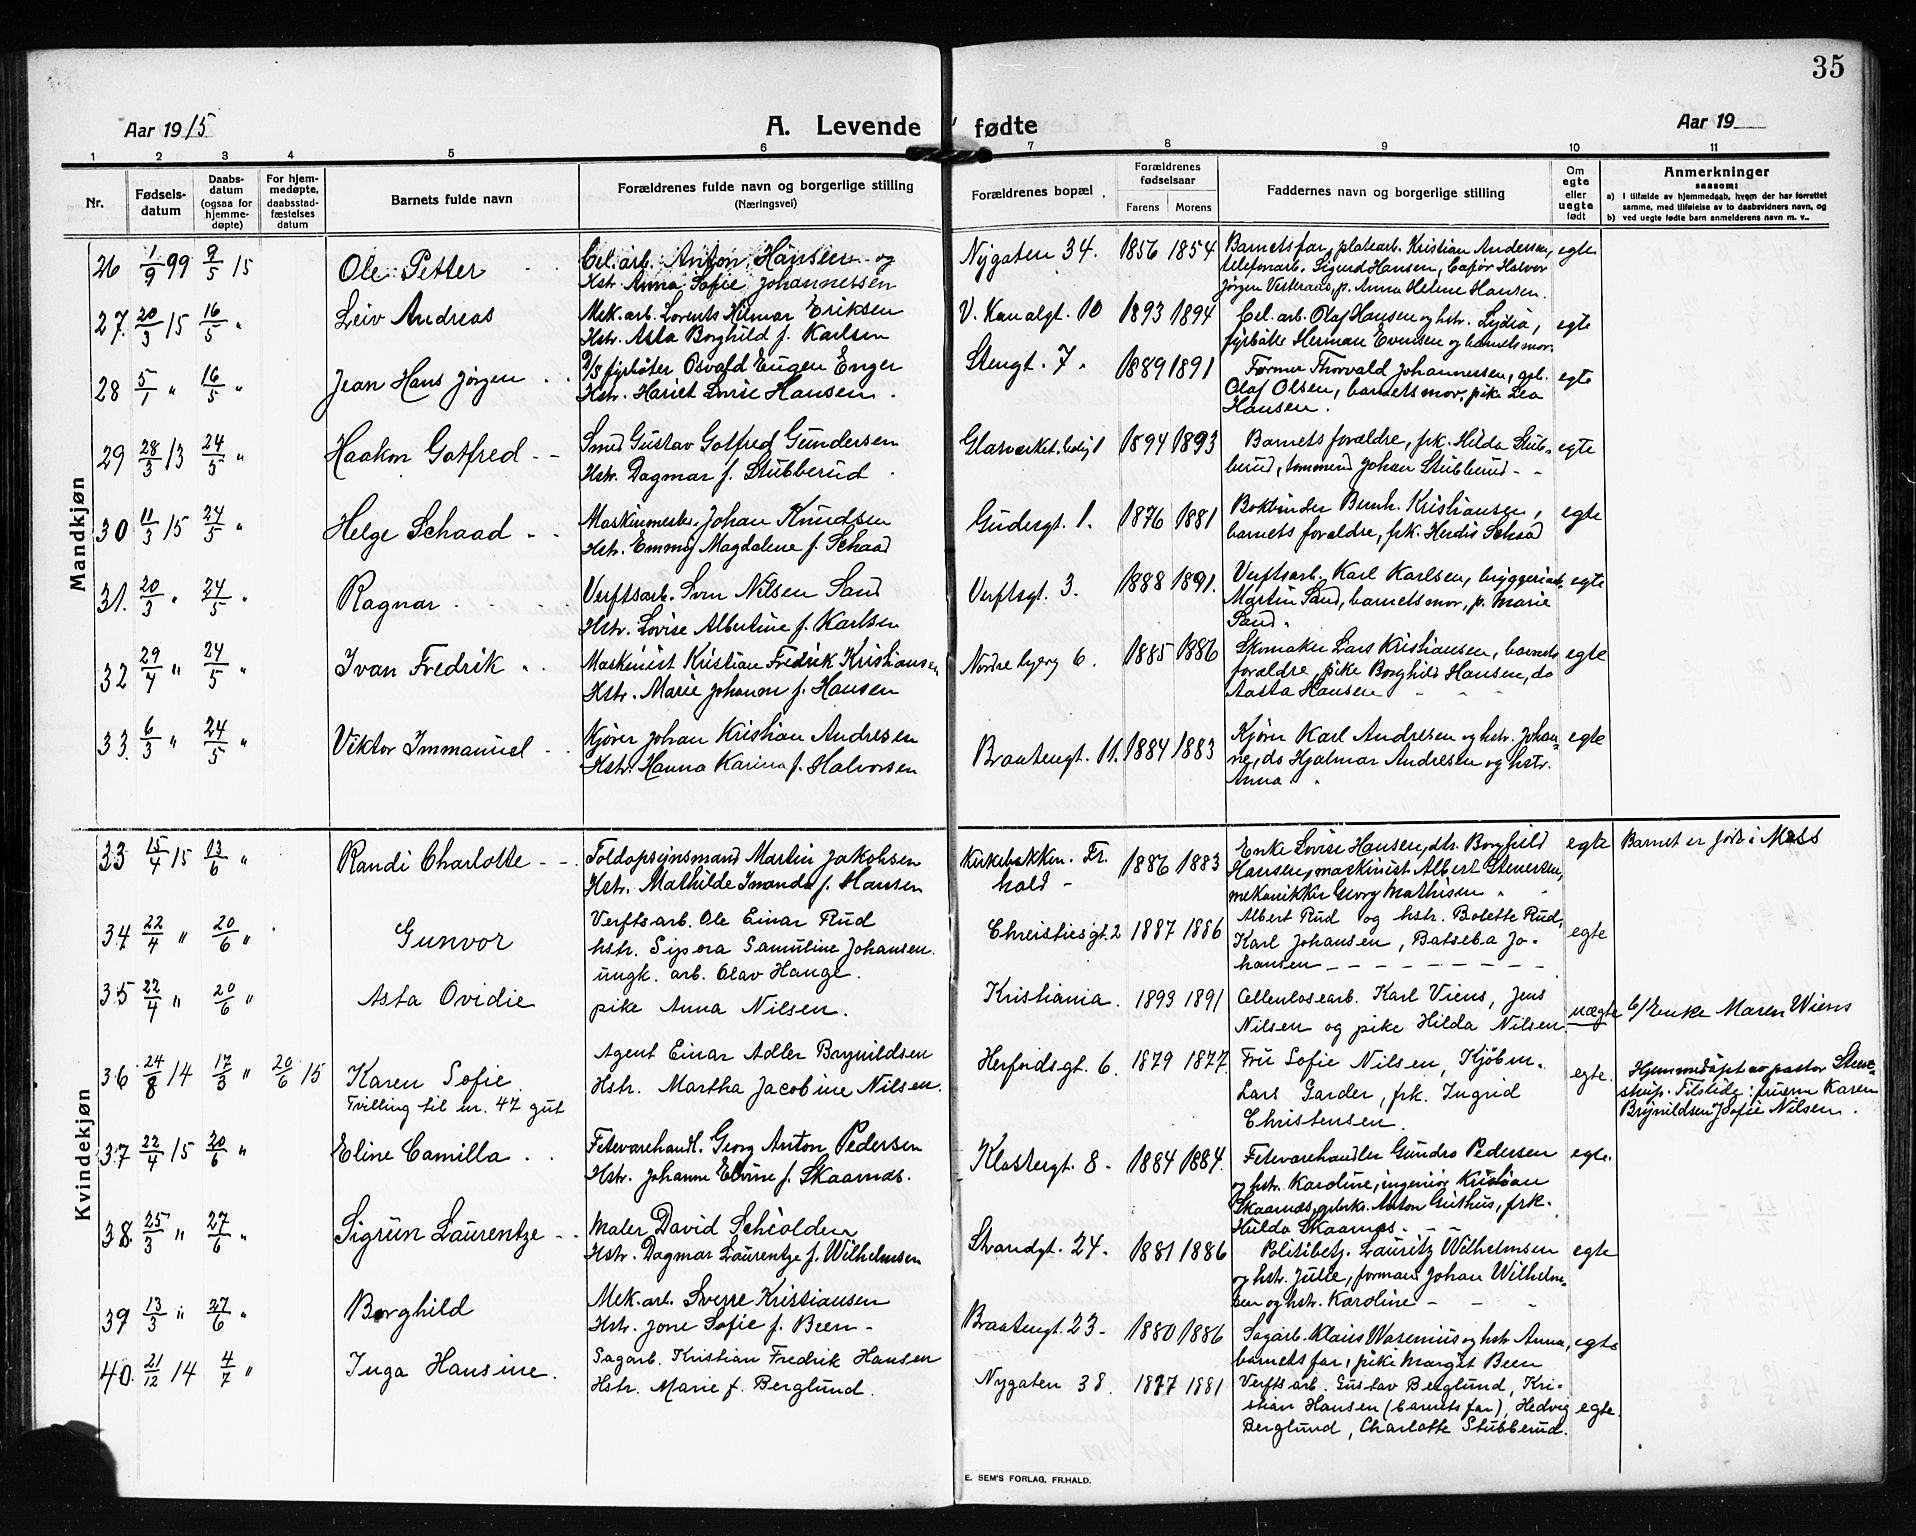 35
Aar 1915
A. Levende fødte
Aar 19
1 2 3 4 5 6 7 8 9 10 11
Nr.
Fødsels-
datum
Daabs-
datum
(ogsaa for
hjemme-
døpte)
For hjem-
medøpte,
daabsstad-
fæstelses
datum
Barnets fulde navn
Forældrenes fulde navn og borgerlige stilling
(Næringsvei)
Forældrenes bopæl
Forældrenes
fødselsaar
Farens Morens
Faddernes navn og borgerlige stilling
Om
egte
eller
uegte
født
Anmerkninger
saasom:
a) I tilfælde av hjemmedaab, hvem der har forrettet
samme, med tilføielse av to daabsvidners navn, og
b) ved uegte fødte barn anmelderens navn m. v.
Mandkjøn
26 1/9 99 9/5 15 Ole Petter
Cel. arb. Anton Hansen og
Hstr. Anna Sofie Johannessen
Nygaten 34. 1856 1854
Barnets far, platearb. Kristian Andersen,
telefonarb. Sigurd Hansen, Halvor
Jørgen Vesteraas, p. Anna Helene Hansen.
egte
27. 20/3 15 16/5 " Leiv Andreas
Mek. arb. Lorents Hilmar Eriksen
Hstr. Asta Borghild f. Karlsen
V. Kanalgt. 10 1893 1894
Cel. arb. Olaf Hansen og hstr. Lydia,
fyrbøter Herman Evensen og barnets mor.
egte
28 5/1 " 16/5 " Jean Hans Jørgen
D/S fyrbøter Osvald Eugen Enger
Hstr. Hariet Lovise Hansen.
Stengt. 7. 1889 1891
Former Thorvald Johannessen, arb.
Olaf Olsen, barnets mor, pike Lea
Hansen.
egte
29 28/3 13 24/5 " Haakon Gotfred
Smed Gustav Gotfred Gundersen
Hstr. Dagmar f. Stubberud.
Glasværket. bolig 1 1894 1893
Barnets forældre, frk. Hilda Stub-
berud, tømmerm. Johan Stubberud
egte
30 11/3 15 24/5 " Helge Schaad
Maskinmester Johan Knudsen
Hstr. Emmy Magdalene f. Schaad
Gudesgt. 1. 1876 1881
Bokbinder Bernh. Kristiansen,
barnets forældre, frk. Herdis Schaad
egte
31. 20/3 " 24/5 " Ragnar
Verftsarb. Sven Nilsen Sand
Hstr. Lovise Albertine f. Karlsen
Verftsgt. 3. 1888 1891.
Verftsarb. Karl Karlsen, bryggeriarb.
Martin Sand, barnets mor, p. Marie
Sand.
egte
32 29/4 " 24/5 " Ivan Fredrik
Maskinist Kristian Fredrik Kristiansen
Hstr. Marie Johanne f. Hansen
Nordre bjerg 6. 1885 1886
Skomaker Lars Kristiansen, barnets
forældre, pike Borghild Hansen, do
Aasta Hansen
egte
33. 6/3 " 24/5 " Viktor Immanuel
Kjører Johan Kristian Andresen
Hstr. Hanna Karina f. Halvorsen
Braatengt. 11. 1884 1883
Kjører Karl Andresen og hstr. Johan-
ne, do Hjalmar Andresen og hstr.
Anna
egte
Kvindekjøn
33 15/4 15 13/6 " Randi Charlotte
Toldopsynsmand Martin Jakobsen
Hstr. Mathilde Amanda f. Hansen
Kirkebakken. Fr.
hald 1886 1883
Enke Lovise Hansen, dtr. Borghild
Hansen, maskinist Albert Stenersen,
mekanikker Georg Mathisen
egte
Barnet er født i Moss
34 22/4 " 20/6 " Gunvor
Verftsarb. Ole Einar Rud
hstr. Sigora Samuline Johansen.
Christiesgt. 2 1887 1886
Albert Rud og hstr. Bolette Rud,
Karl Johansen, Batseba Jo-
hansen
egte
35 22/4 " 20/6 " Asta Ovidie
ungk. arb. Olav Hauge.
pike Anna Nilsen.
Kristiania. 1893 1891
Cellulosearb. Karl Viens, Jens
Nilsen og pike Hilda Nilsen
uægte
b/ Enke Maren Wiens
36 24/8 14 17/3 " 20/6 15 Karen Sofie.
Tvilling til nr. 47 gut
Agent Einar Adler Brynildsen
Hstr. Martha Jacobine Nilsen.
Herfordsgt. 6. 1879 1877
Fru Sofie Nilsen, Kjøbm.
Lars Garder, frk. Ingrid
Christensen.
egte.
Hjemmedøpt av pastor Steen-
strup. Tilstede: fruerne Karen
Brynildsen, Sofie Nilsen.
37 22/4 15 20/6 " Eline Camilla
Fetevarehandl. Georg Anton Pedersen
Hstr. Johanne Elvine f. Skaarnæs.
Klostergt. 8 1884 1884.
Fetevarehandler Gundro Pedersen
og hstr. Karoline, ingeniør Kristian
Skaarnæs, Anton Guthus, frk.
Hulda Skaarnæs.
egte.
38. 25/3 " 27/6 " Sigrun Laurentze
Maler David Schiolden
Hstr. Dagmar Laurentze f. Wilhelmsen
Strandgt. 24. 1881 1886
Politibetj. Lauritz Wilhelmsen
og hstr. Julie, formand Johan Wilhelm-
sen og hstr. Karoline
egte
39 13/3 " 27/6 " Borghild
Mek. arb. Sverre Kristiansen
Hstr. Jone Sofie f. Been
Braatengt. 23 1880 1886
Sagarb. Klaus Warenius og hstr. Anna,
barnets far, pike Margit Been
egte
40. 21/12 14 4/7 " Inga Hansine.
Sagarb. Kristian Fredrik Hansen
Hstr. Marie f. Berglund.
Nygaten 38. 1877 1881
Verftsarb. Gustav Berglund, Kri-
stian Hansen (barnets far), Hedvig
Berglund, Charlotte Stubberud.
egte.
E. SEM'S FORLAG, FR.HALD.